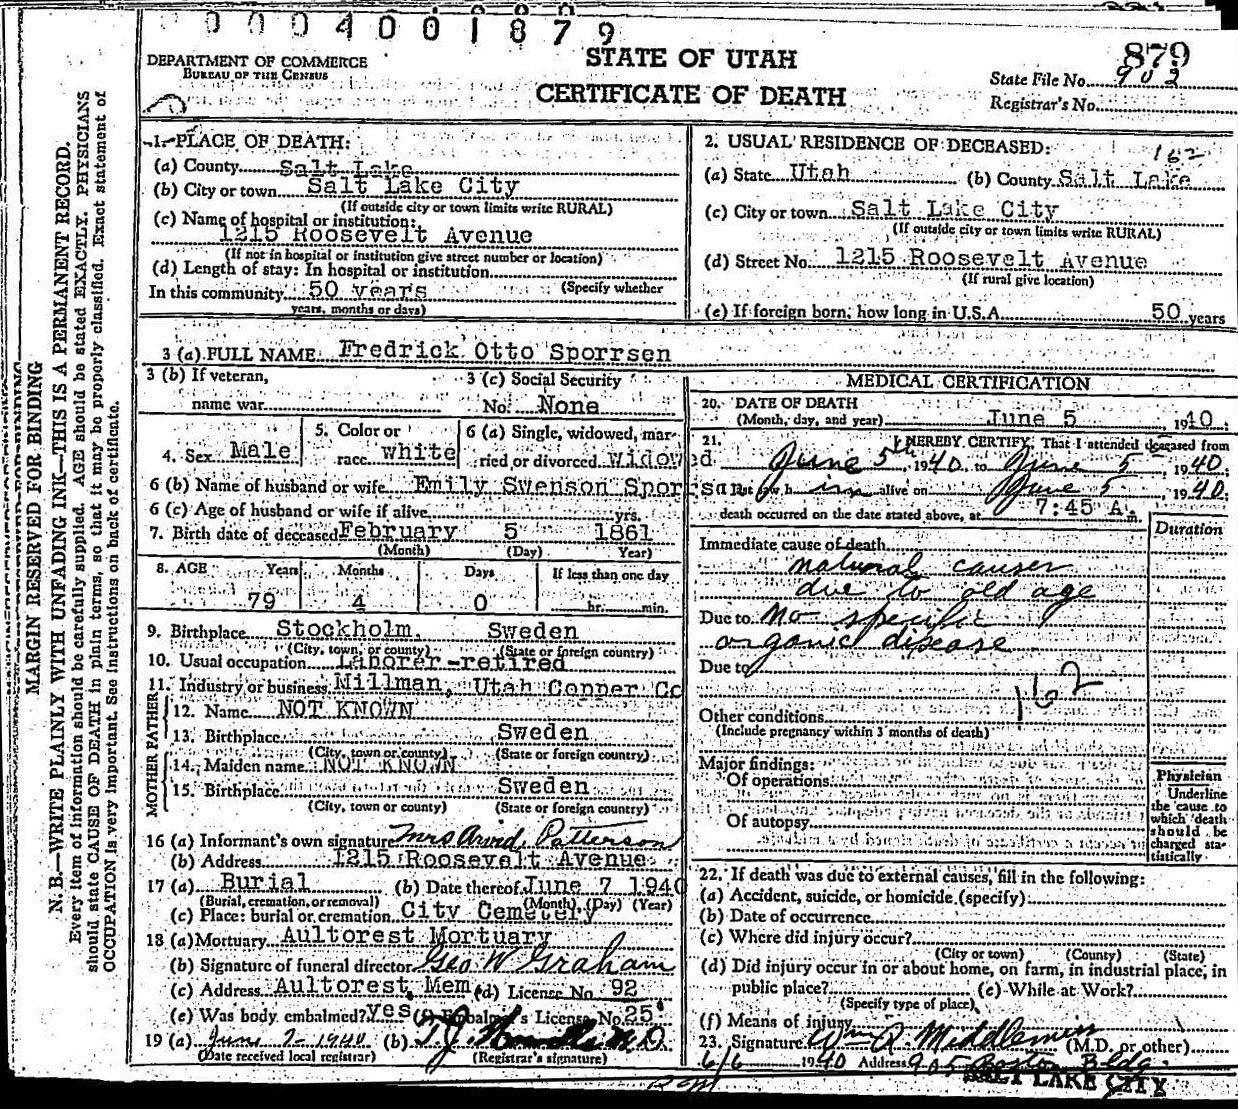 0004001879
DEPARTMENT OF COMMERCE
BUREAU OF THE CENSUS
STATE OF UTAH
CERTIFICATE OF DEATH
879
State File No. 902
Registrar's No.
MARGIN RESERVED FOR BINDING
N. B.—WRITE PLAINLY WITH UNFADING INK—THIS IS A PERMANENT RECORD.
Every item of information should be carefully supplied. AGE should be stated EXACTLY. PHYSICIANS
should state CAUSE OF DEATH in plain terms, so that it may be properly classified. Exact statement of
OCCUPATION is very important. See instructions on back of certificate.
1. PLACE OF DEATH:
(a) County Salt Lake
(b) City or town Salt Lake City
(If outside city or town limits write RURAL)
(c) Name of hospital or institution:
1215 Roosevelt Avenue
(If not in hospital or institution give street number or location)
(d) Length of stay: In hospital or institution
In this community 50 years (Specify whether
years, months or days)
2. USUAL RESIDENCE OF DECEASED:
162
(a) State Utah (b) County Salt Lake
(c) City or town Salt Lake City
(If outside city or town limits write RURAL)
(d) Street No. 1215 Roosevelt Avenue
(If rural give location)
(e) If foreign born, how long in U.S.A. 50 years
3 (a) FULL NAME Fredrick Otto Sporrsen
3 (b) If veteran,
name war
3 (c) Social Security
No. None
4. Sex Male
5. Color or
race white
6 (a) Single, widowed, mar-
ried or divorced widowed
6 (b) Name of husband or wife Emily Swenson Sporrsen
6 (c) Age of husband or wife if alive yrs.
7. Birth date of deceased February 5 1861
(Month) (Day) Year)
8. AGE Years Months Days If less than one day
79 4 0 hr. min.
9. Birthplace Stockholm, Sweden
(City, town, or county) (State or foreign country)
10. Usual occupation Laborer-retired
11. Industry or business Millman, Utah Copper Co
FATHER
12. Name NOT KNOWN
13. Birthplace Sweden
(City, town or county) (State or foreign country)
MOTHER
14. Maiden name NOT KNOWN
15. Birthplace Sweden
(City, town or county) (State or foreign country)
16 (a) Informant's own signature Mrs Arvid Patterson
(b) Address 1215 Roosevelt Avenue
17 (a) Burial (b) Date thereof June 7 1940
(Burial, cremation, or removal) (Month) (Day) (Year)
(c) Place: burial or cremation City Cemetery
18 (a) Mortuary Aultorest Mortuary
(b) Signature of funeral director Geo. W Graham
(c) Address Aultorest Mem (d) License No. 92
(e) Was body embalmed? yes (f) Embalmer's License No. 25
19 (a) June 7-1940 (b) T.J. Howells M.D.
(Date received local registrar) (Registrar's signature)
MEDICAL CERTIFICATION
20. DATE OF DEATH
(Month, day, and year) June 5, 1940
21. I HEREBY CERTIFY, That I attended deceased from
June 5th, 1940, to June 5, 1940,
I last saw him alive on June 5, 1940;
death occurred on the date stated above, at 7:45 A m.
Duration
Immediate cause of death
natural causes
due to old age
Due to no specific
organic disease
Due to
162
Other conditions
(Include pregnancy within 3 months of death)
Major findings:
Of operations
Of autopsy
Physician
Underline
the cause to
which death
should be
charged sta-
tistically
22. If death was due to external causes, fill in the following:
(a) Accident, suicide, or homicide (specify)
(b) Date of occurrence
(c) Where did injury occur?
(City or town) (County) (State)
(d) Did injury occur in or about home, on farm, in industrial place, in
public place? (e) While at Work?
(Specify type of place)
(f) Means of injury
23. Signature Wm R. Middlemiss (M.D. or other)
6/6 1940 Address 905 Boston Bldg.
SALT LAKE CITY